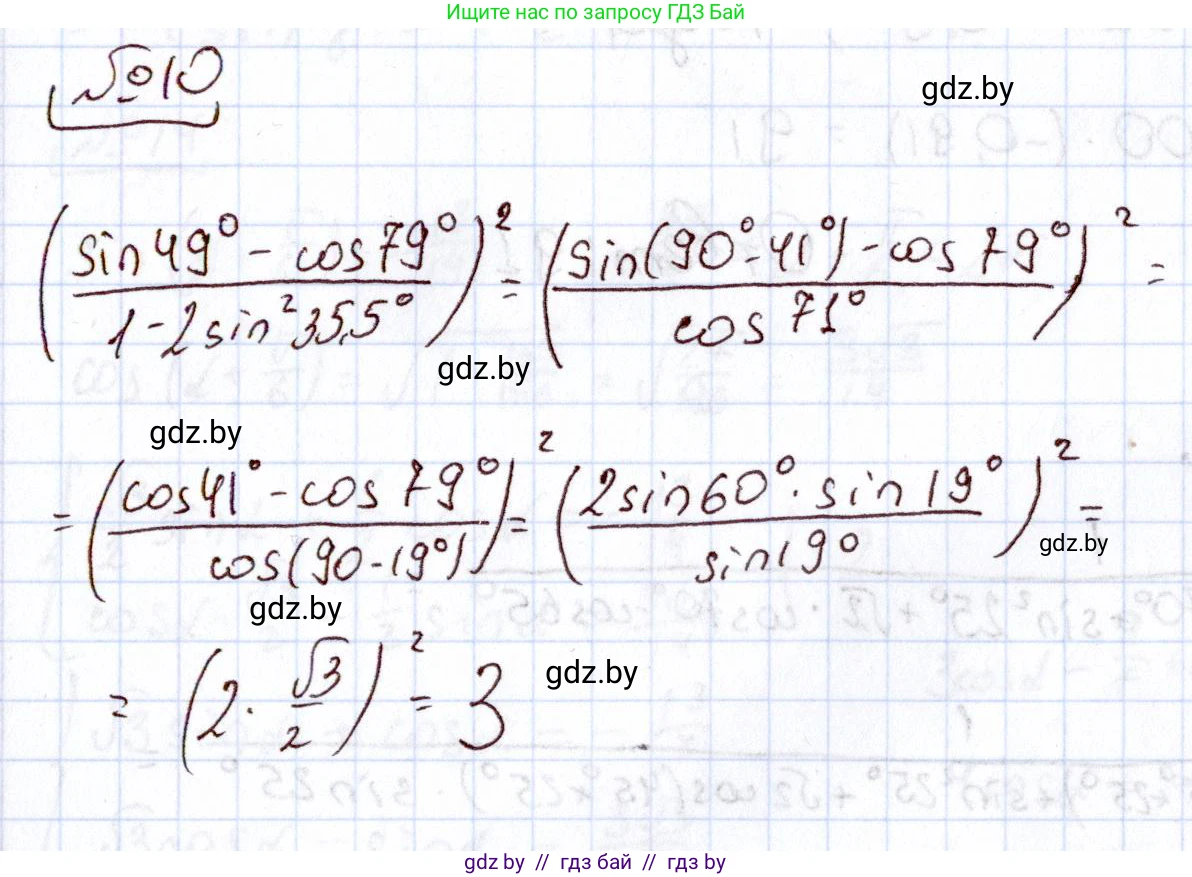 Ищите нас по запросу ГДЗ Бай
№10
gdz.by
(sin49° - cos79° / 1-2sin²35,5°)² = (sin(90°-41°) - cos79° / cos71°)² =
gdz.by
gdz.by
= (cos41° - cos79° / cos(90-19°))² = (2sin60° · sin19° / sin19°)² =
gdz.by
gdz.by
= (2 · √3 / 2)² = 3
gdz.by
gdz.by // гдз бай // гдз by